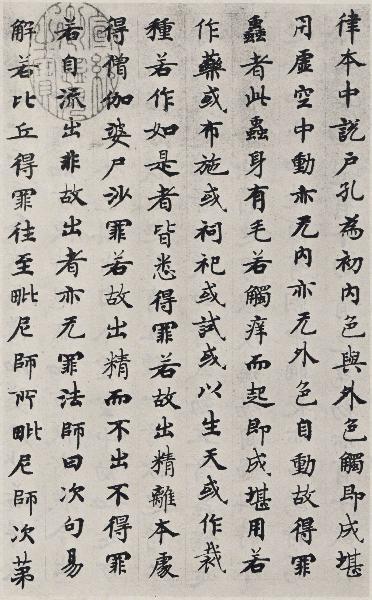 律本中説户孔為初内色與外色觸即成堪
用虚空中動亦无内亦无外色自動故得罪
蟲者此蟲身有毛若觸痒而起即成堪用若
作藥或布施或祠祀或試或以生天或作栽
種若作如是者皆悉得罪若故出精離本處
得僧伽婆尸沙罪若故出精而不出不得罪
若自流出非故出者亦无罪法師曰次句易
解若比丘得罪往至毗尼師所毗尼師次苐